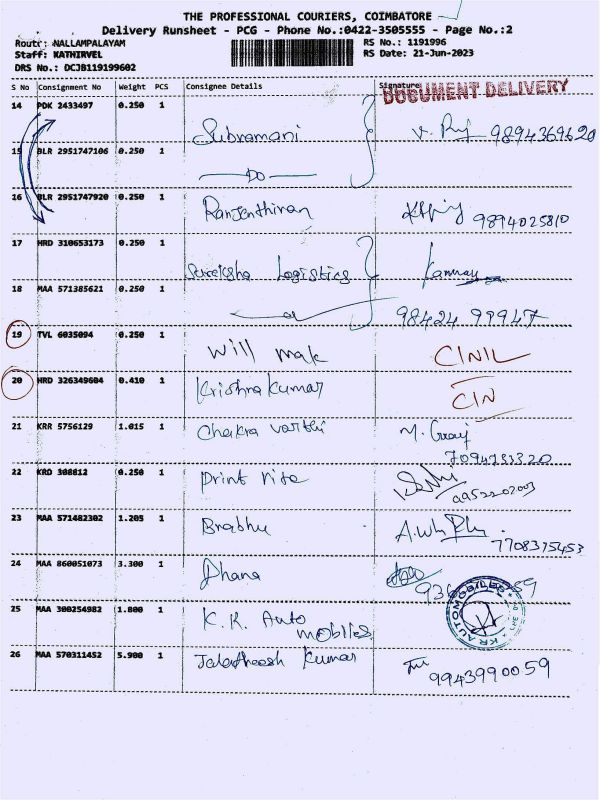 THE PROFESSIONAL COURIERS, COIMBATORE
Delivery Runsheet - PCG - Phone No.:0422-3505555 - Page No.:2
Route: NALLAMPALAYAM RS No.: 1191996
Staff: KATHIRVEL RS Date: 21-Jun-2023
DRS No.: DCJB119199602
S No Consignment No Weight PCS Consignee Details Signature
DOCUMENT DELIVERY
14 PDK 2433497 0.250 1
Subramani 9894369620
15 BLR 2951747106 0.250 1
Do
16 BLR 2951747920 0.250 1
Ranjanthiran 9894025810
17 HRD 310653173 0.250 1
Sureksha Logistics Kannan
18 MAA 571385621 0.250 1
98424 99947
19 TVL 6035094 0.250 1
Will mak CINIL
20 HRD 326349604 0.410 1
Krishna kumar CIN
21 KRR 5756129 1.015 1
Chakra varthi
7094733320
22 KRD 308812 0.250 1
Print rite
9952202003
23 MAA 571482302 1.205 1
Brabhu
7708375453
24 MAA 860051073 3.300 1
Dhana
25 MAA 300254982 1.800 1
K.K. Auto
mobiles
KR AUTOMOBILES
26 MAA 570311452 5.900 1
kumar
9943990059